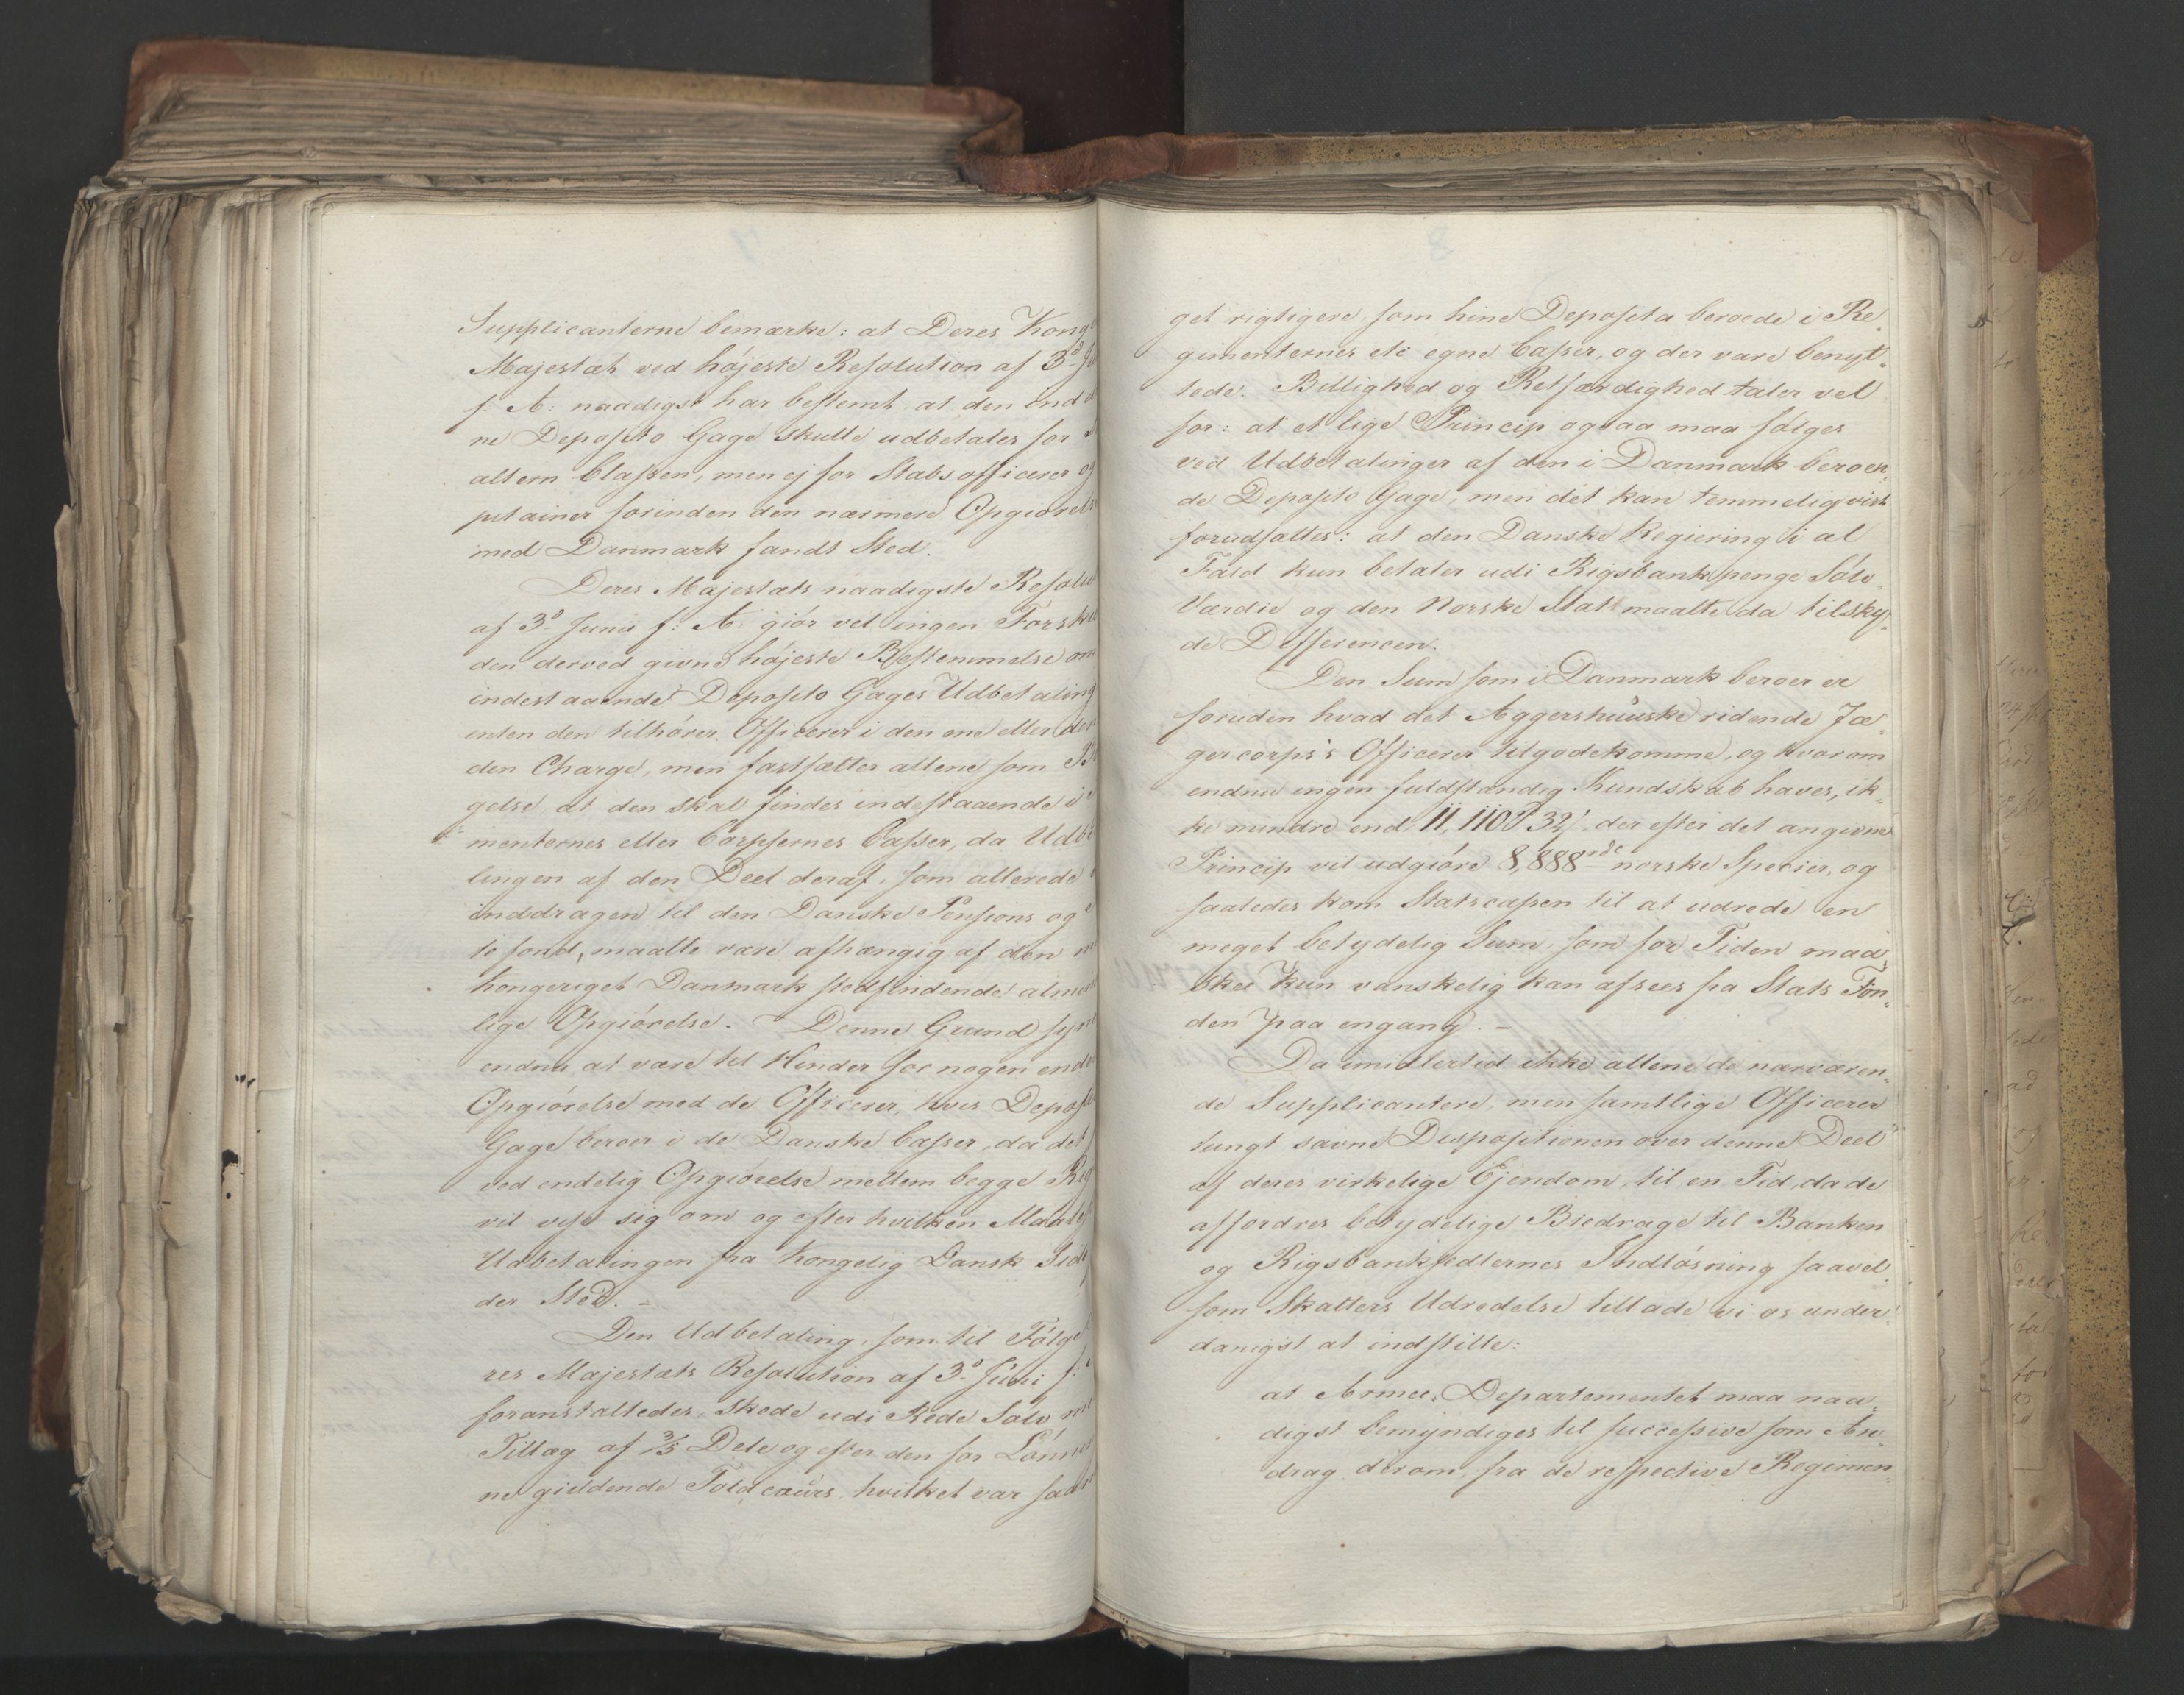 Supplicanterne bemærke: at Deres Kong
Majestæt ved højeste Resolution af 3d
f. A: naadigst har bestemt at den ind
ne Deposito Gage skulle udbetales for
altern Classen, men ej for Stabsofficerer og
pitainer forinden den nærmere Opgiørelse
med Danmark fandt Sted.
Deres Majestæts naadigste Resolu
af 3d Junii f: A: giør vel ingen Forskel
den derved givne højeste Bestemmelse om
indestaaende Deposito Gages Udbetaling
enten den tilhører Officerer i den ene eller
den Charge, men fastsætter allene som
gelse at den skal findes indestaaende i
menternes eller Corpsernes Casser, da Udbe
lingen af den Deel deraf, som allerede
inddragen til den Danske Pensions og
te fond, maatte være afhængig af den
kongeriget Danmark stedfindende almin
lige Opgiørelse. Denne Grund syn
endnu at være til Hinder for nogen ende
Opgiørelse med de Officerer, hvis Deposi
Gage beroer i de Danske Casser, da det
ved endelig Opgiørelse mellem begge Rig
vil vise sig om og efter hvilken Maale
Udbetalingen fra Kongelig Dansk Side
der Sted. –
Den Udbetaling, som til Følge
res Majestæts Resolution af 3d Junii f:
foranstaltedes, skede udi Rede Sølv
Tillæg af 3/5 Dele og efter den for Lønnin
ne gieldende Toldcours, hvilket var saa
get rigtigere, som hine Deposita beroede i Re-
gimenternes etc egne Casser, og der vare benyt-
tede. Billighed og Retfærdighed taler vel
for: at et lige Princip ogsaa maa følges
ved Udbetalinger af den i Danmark beroen-
de Deposito Gage, men det kan temmelig vist
forudsættes: at den Danske Regiering i al
Fald kun betaler udi Rigsbankpenge Sølv
Værdie og den Norske Stat maatte da tilsky-
de Differencen.
Den Sum som i Danmark beroer er
foruden hvad det Aggershuuske ridende Jæ-
gercorps's Officerer tilgodekomme, og hvorom
endnu ingen fuldstændig Kundskab haves, ik-
ke mindre end 11,110 32 der efter det angivne
Princip vil udgiøre 8,888 norske Specier, og
saaledes kom Statscassen til at udrede en
meget betydelig Sum, som for Tiden maa-
skee kun vanskelig kan afsees fra Stats Fon-
den paa engang. –
Da imidlertid ikke allene de nærværen-
de Supplicantere, men samtlige Officerer
tungt savne Dispositionen over denne Deel
af deres virkelige Ejendom, til en Tid, da de
affordres betydelige Biedrage til Banken
og Rigsbanksedlernes Indløsning saavel-
som Skatters Udredelse tillade vi os under-
danigst at indstille:
at Armee-Departementet maa naa-
digst bemyndiges til successive som An-
drag derom fra de respective Regimen-